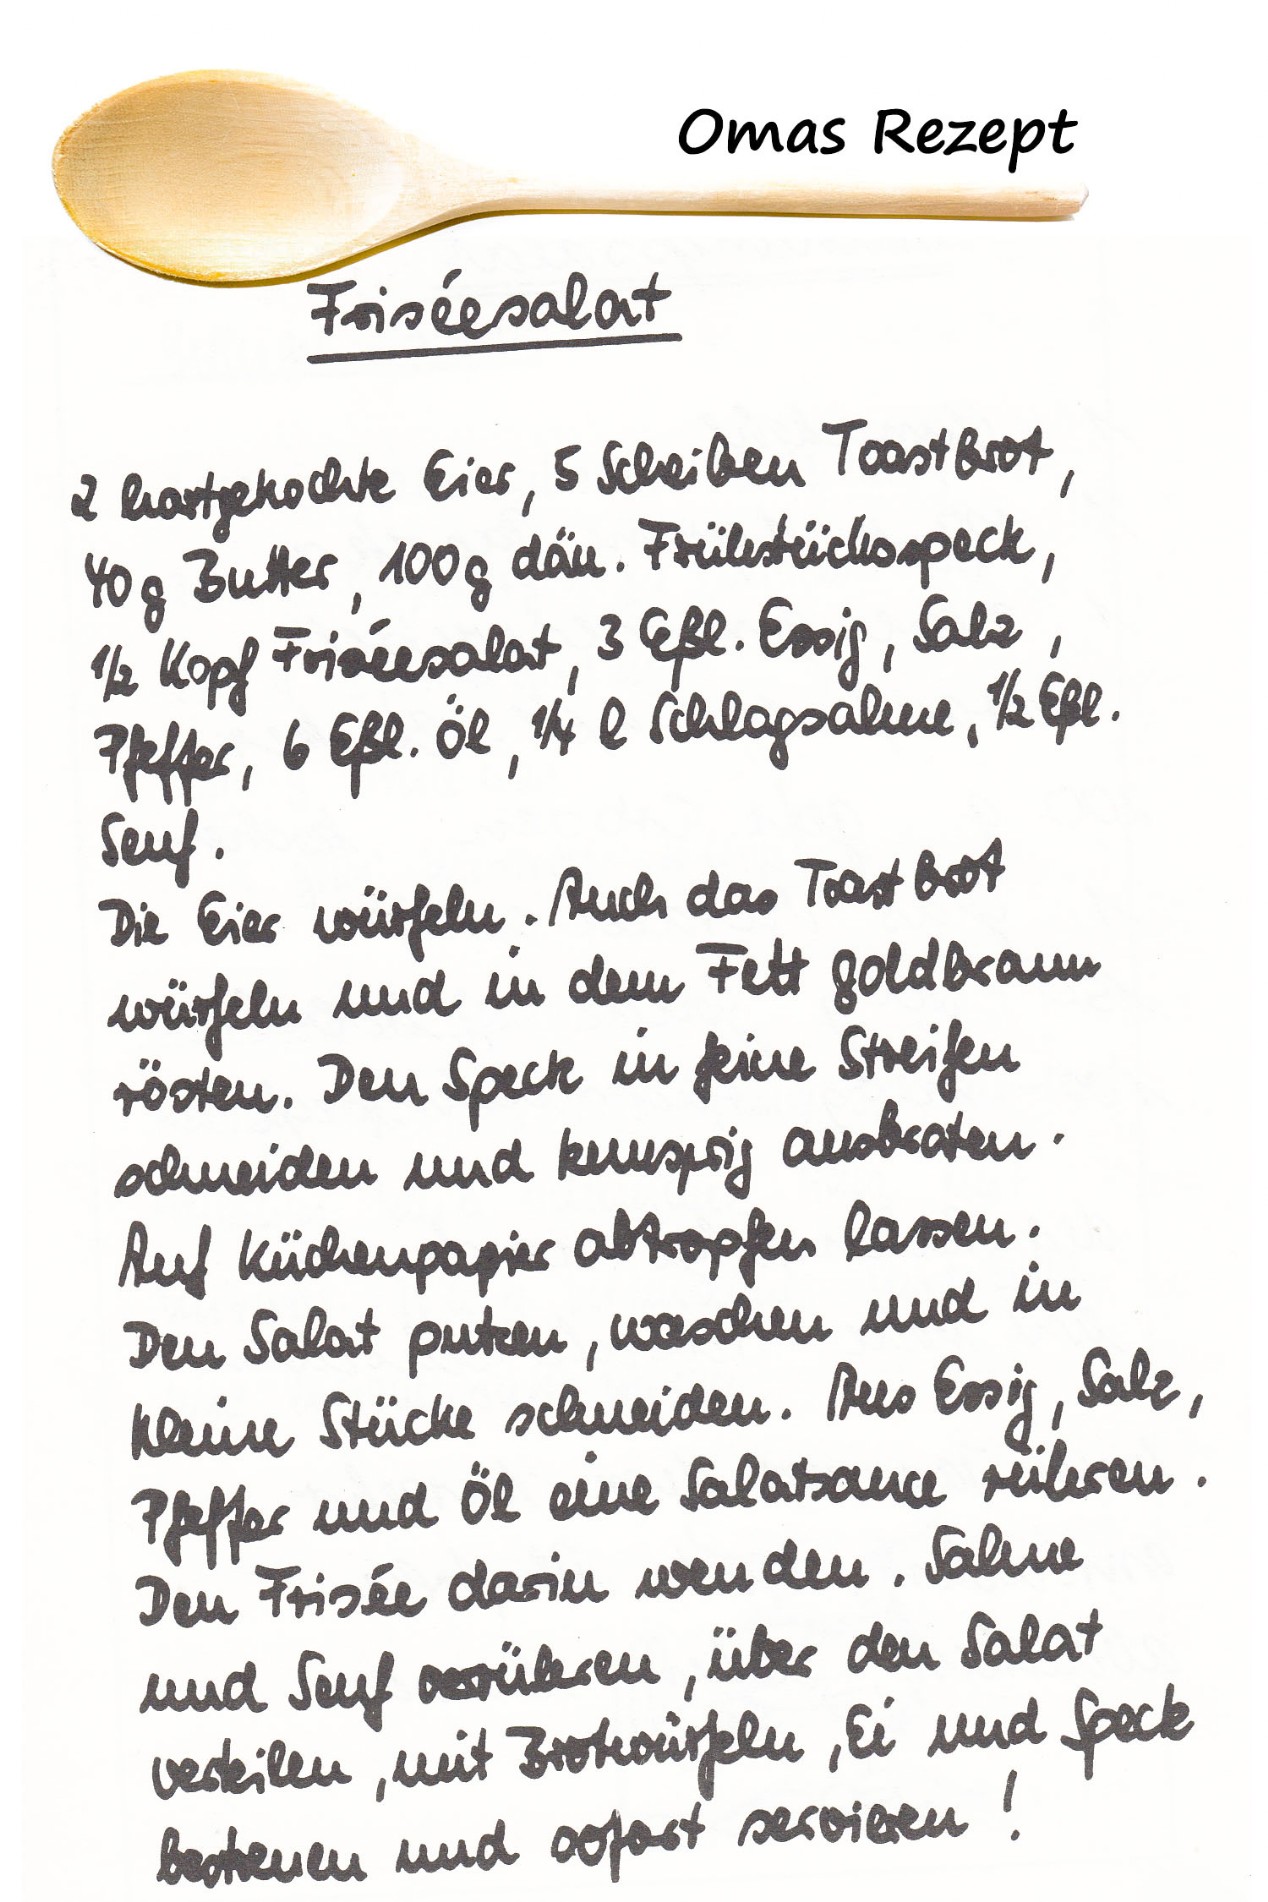 Omas Rezept
Friséesalat
2 hartgekochte Eier, 5 Scheiben Toastbrot,
40 g Butter, 100 g dän. Frühstücksspeck,
1/2 Kopf Friséesalat, 3 Eßl. Essig, Salz,
Pfeffer, 6 Eßl. Öl, 1/4 l Schlagsahne, 1/2 Eßl.
Senf.
Die Eier würfeln. Auch das Toastbrot
würfeln und in dem Fett goldbraun
rösten. Den Speck in feine Streifen
schneiden und knusprig ausbraten.
Auf Küchenpapier abtropfen lassen.
Den Salat putzen, waschen und in
kleine Stücke schneiden. Aus Essig, Salz,
Pfeffer und Öl eine Salatsauce rühren.
Den Frisée darin wenden. Sahne
und Senf verrühren, über den Salat
verteilen, mit Brotwürfeln, Ei und Speck
bestreuen und sofort servieren!